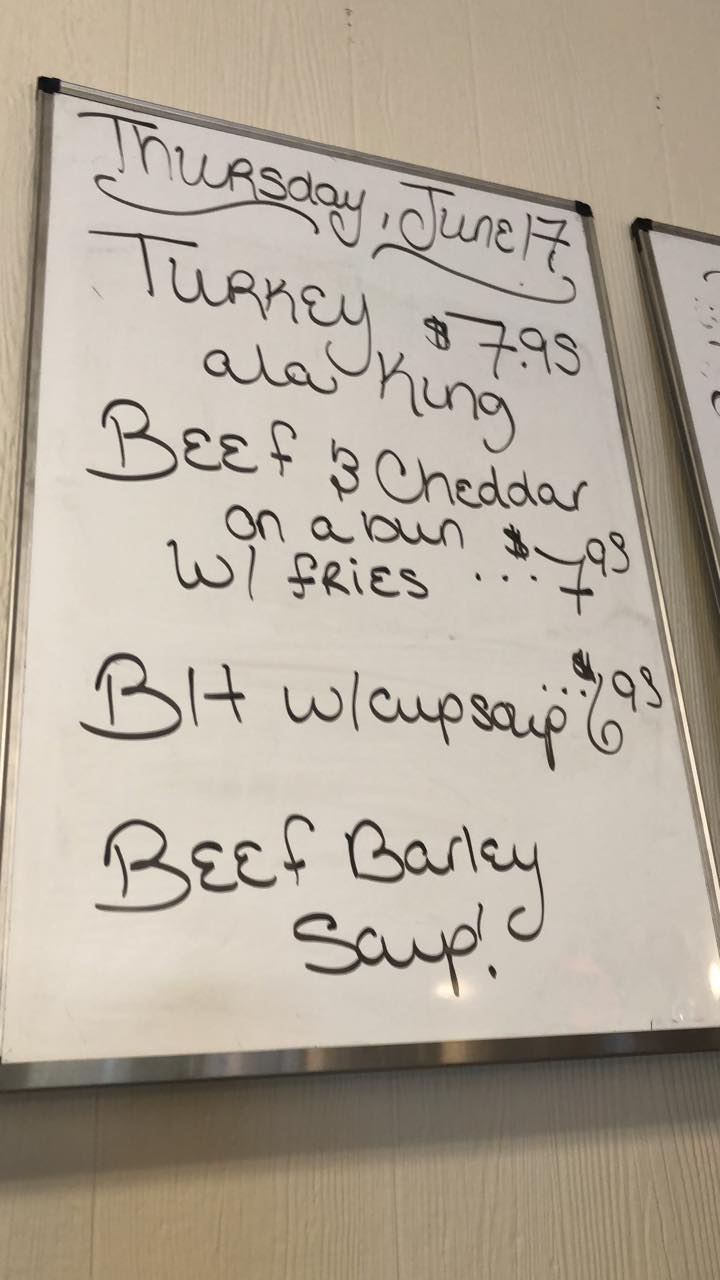 Thursday, June 17
Turkey $7.95
ala King
Beef & Cheddar
on a bun
w/ fries ... $7.95
Blt w/cup soup ... $6.95
Beef Barley
Soup!